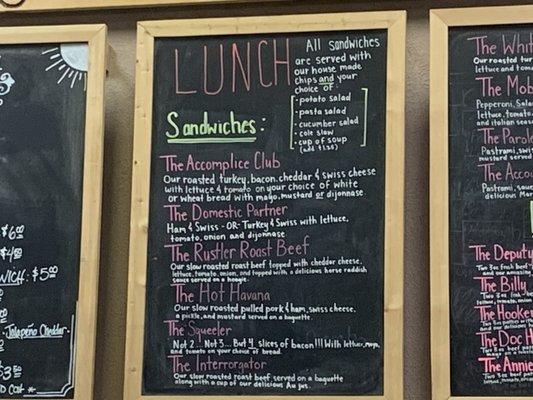 $6.00
$4.00
WICH: $5.50
Jalapeño Cheddar
$3.50
LUNCH
All sandwiches
are served with
our house made
chips and your
choice of:
• potato salad
• pasta salad
• cucumber salad
• cole slaw
• cup of soup
Sandwiches:
The Accomplice Club
Our roasted turkey, bacon, cheddar & swiss cheese
with lettuce & tomato on your choice of white
or wheat bread with mayo, mustard or dijonnase.
The Domestic Partner
Ham & Swiss -OR- Turkey & Swiss with lettuce,
tomato, onion and dijonnase
The Rustler Roast Beef
Our slow roasted roast beef topped with cheddar cheese,
lettuce, tomato, onion, and topped with a delicious horse raddish
sauce served on a hoagie.
The Hot Havana
Our slow roasted pulled pork & ham, swiss cheese,
a pickle, and mustard served on a baguette.
The Squeeler
Not 2... Not 3... But 4 slices of bacon!!! With lettuce, mayo,
and tomato on your choice of bread.
The Interrorgator
Our slow roasted roast beef served on a baguette
along with a cup of our delicious Au jus.
The Whit
Our roasted tur
lettuce and toma
The Mob
Pepperoni, Salam
lettuce, tomato,
and italian seas
The Parole
Pastrami, swiss
mustard served
The Acco
Pastrami, sau
delicious Mar
The Deputy
and our amazing
The Billy
lettuce, tomato, onion
The Hooker
and our delicious
The Doc H
mayo on a toasted
The Annie
lettuce, tomato, onion